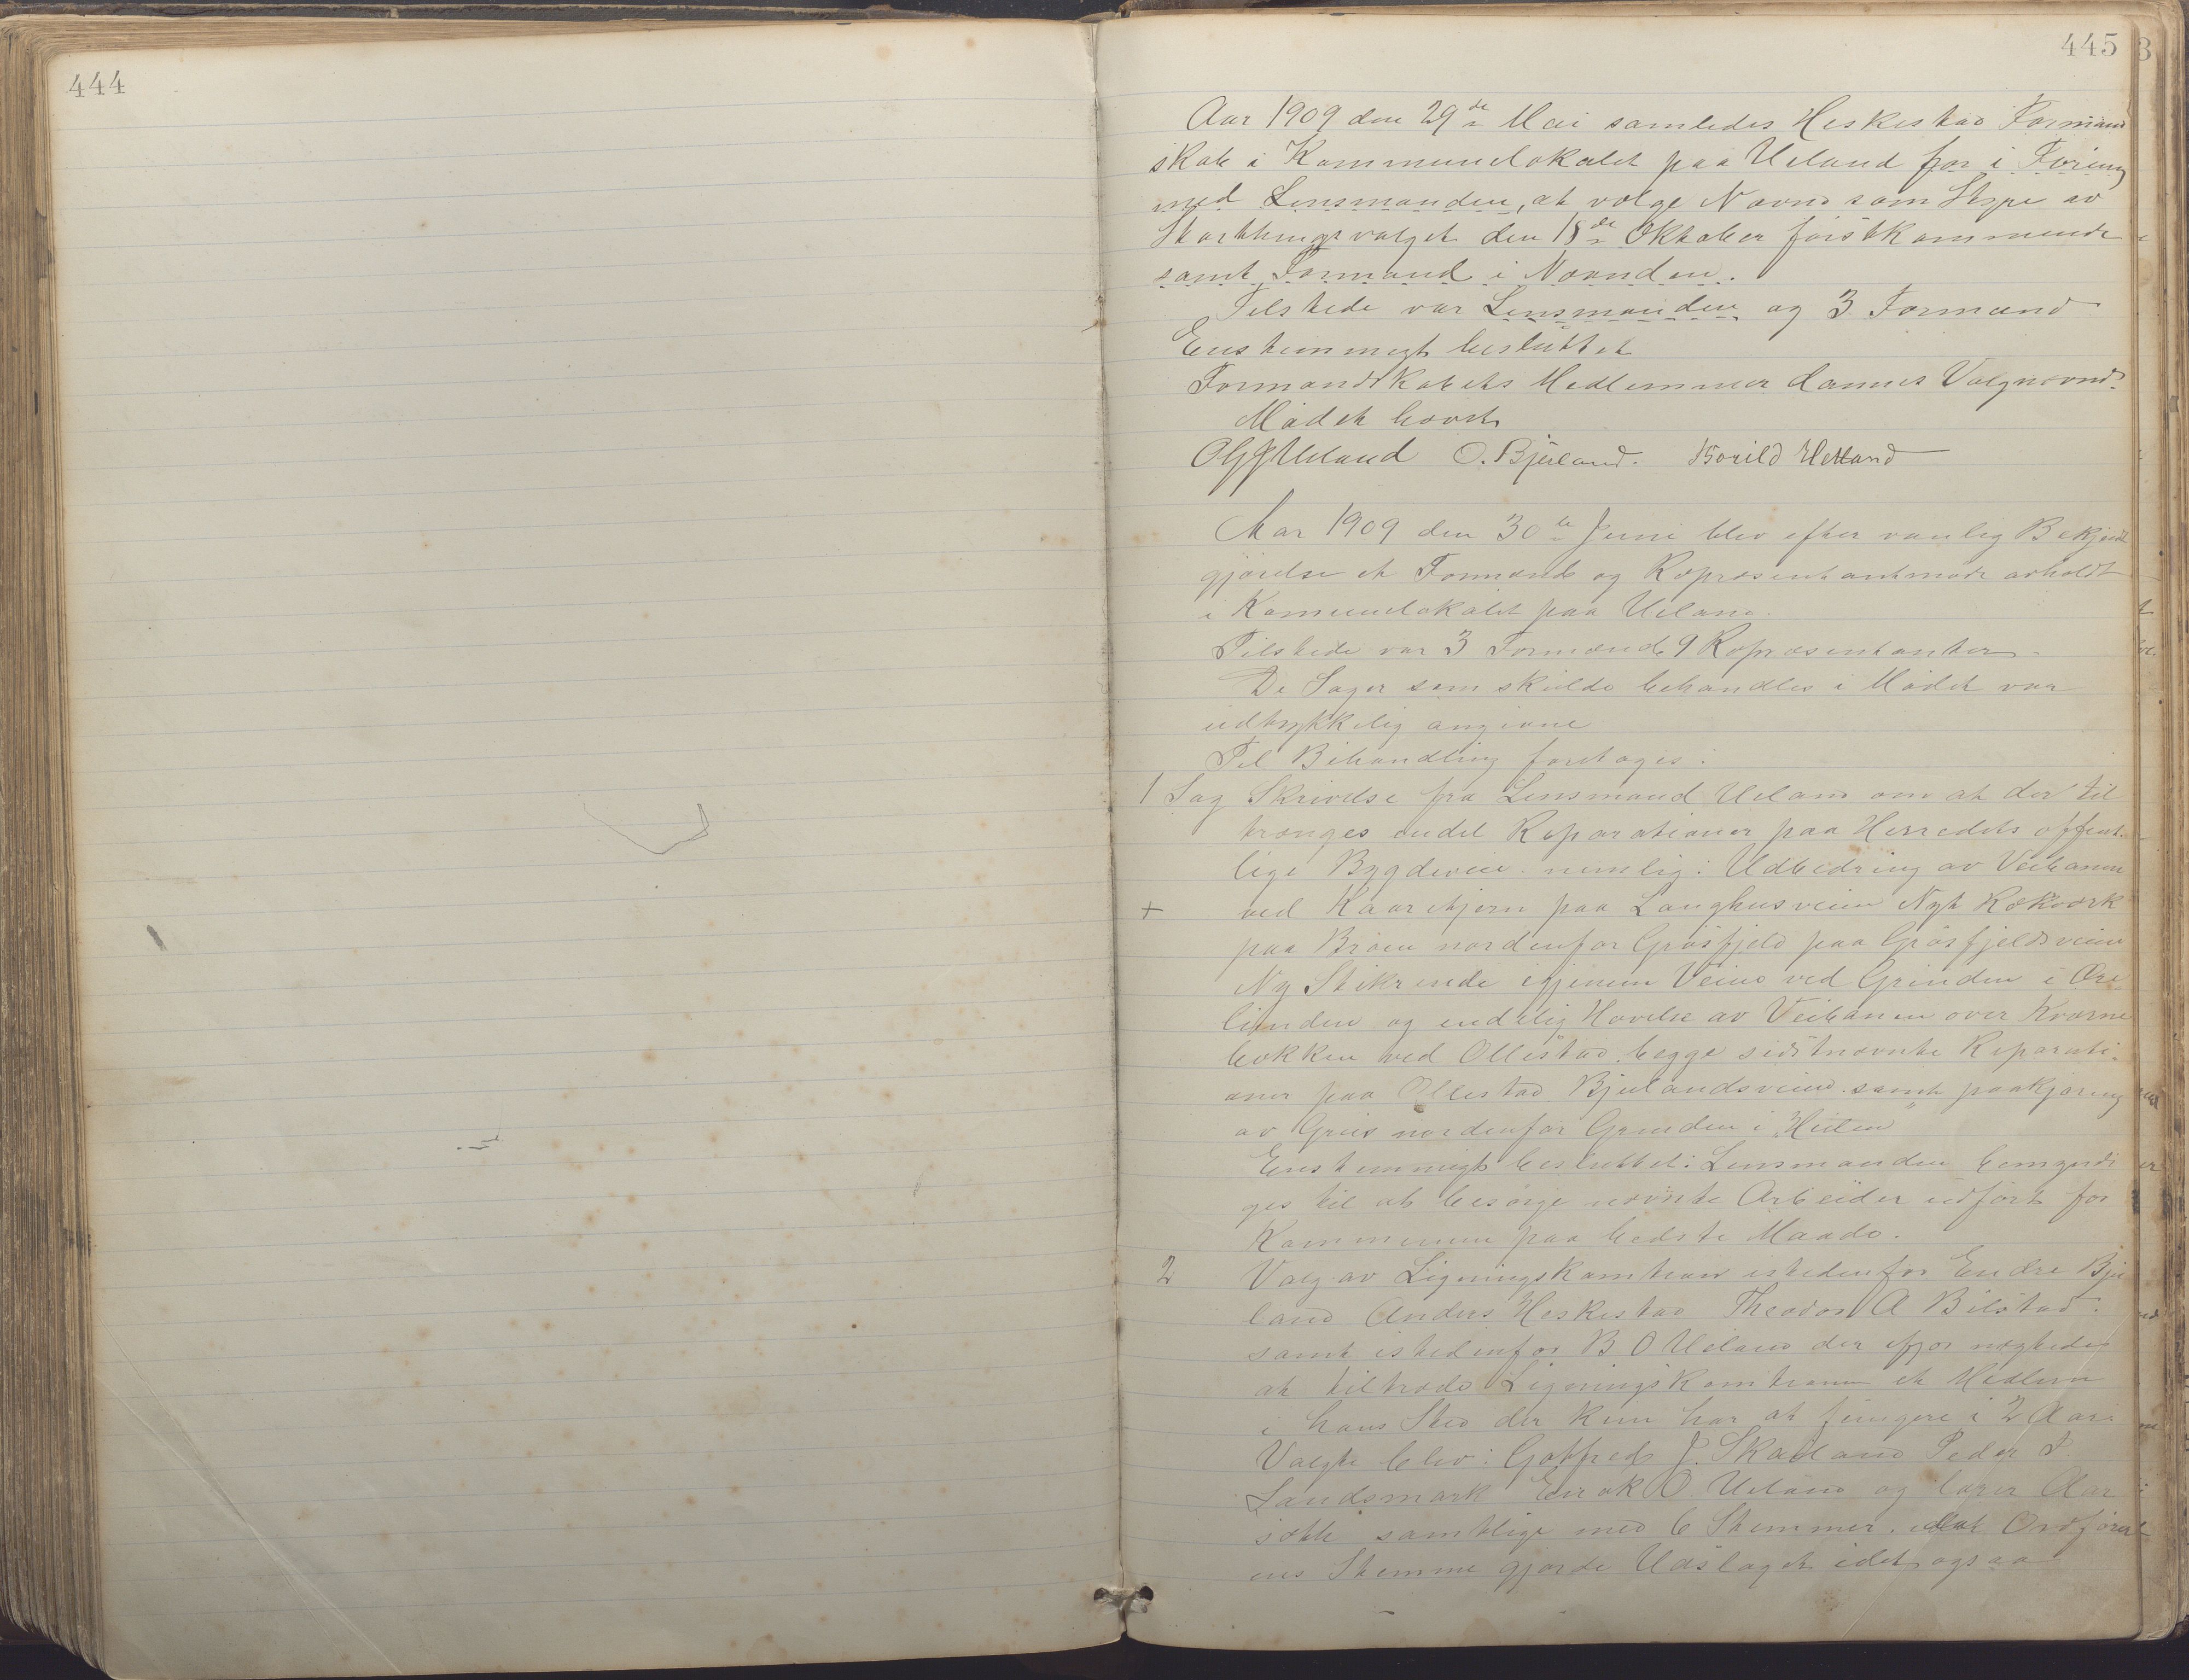 444
445
Aar 1909 den 29de Mai samledes Heskestad Formand
skab i Kommunelokalet paa Ueland for i Foring
med Lensmanden, at vælge Nævnd som Styre av
Storthingsvalget den 18de Oktober förstkommende
samt Formand i Nævnden.
Tilstede var Lensmanden og 3 Formænd
Enstemmigt besluttet
Formandskabets Medlemmer dannes Valgnævnd.
Mödet hævet
Ueland O. Bjuland. Torild Hetland
Aar 1909 den 30te Juni blev efter vanlig Bekjendt
gjörelse et Formænds og Repræsentantmöde avholdt
i Kommunelokalet paa Ueland.
Tilstede var 3 Formænd 9 Repræsentanter.
De Sager som skulde behandles i Mödet var
udtrykkelig angivne
Til Behandling foretoges:
1 Sag Skrivelse fra Lensmand Ueland om at der til
trænges endel Reparationer paa Herredets offent-
lige Bygdeveie nemlig: Udbedring av Veibanen
+ ved Kaaretjern paa Langhusveien Nyt Rækværk
paa Broen nordenfor Grösfjeld paa Grösfjeldsveien
Ny Stikrende igjenem Veien ved Grinden i Ore
linden og endelig Hævelse av Veibanen over Kværne
bækken ved Ollestad, begge sidstnævnte Reparati-
oner paa Ollestad Bjulandsveien samt paakjöring
av Grus nordenfor Grinden i "Hieten"
Enstemmigt besluttet: Lensmanden bemyndi
ges til at besörge nævnte Arbeider udfört for
Kommunen paa bedste Maade.
2 Valg av Ligningskomtræn istedenfor Endre Bju
land Anders Heskestad Theodor A Bilstad.
samt istedenfor B O Ueland der ifjor nægtedes
at tiltræde Ligningskomtræen et Medlem
i hans Sted der kun har at fungere i 2 Aar.
Valgte blev: Gotfred J. Skadland Peder T
Landsmark Eirik O Ueland og lærer Aar
samtlige med 6 Stemmer, idet Ordförer
ens Stemme gjorde Udslaget idet ogsaa